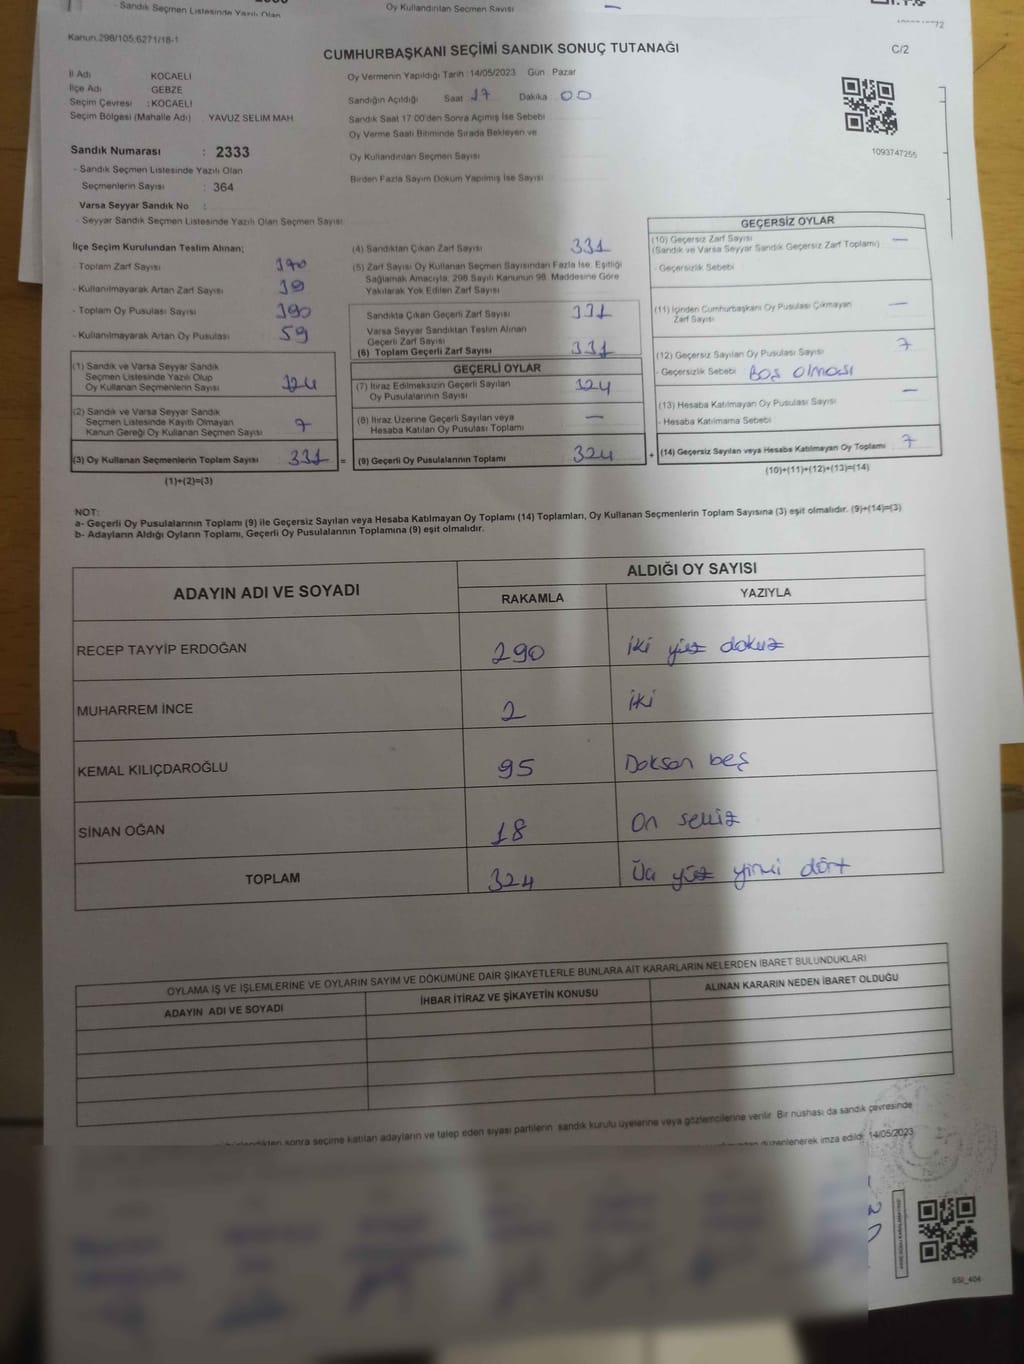 Sandık Seçmen Listesinde Yazılı Olan
Oy Kullandırılan Seçmen Sayısı —
Kanun.298/105,6271/18-1
CUMHURBAŞKANI SEÇİMİ SANDIK SONUÇ TUTANAĞI
C/2
İl Adı KOCAELİ
İlçe Adı GEBZE
Seçim Çevresi : KOCAELİ
Seçim Bölgesi (Mahalle Adı) YAVUZ SELIM MAH
Oy Vermenin Yapıldığı Tarih :14/05/2023 Gün Pazar
Sandığın Açıldığı Saat 17 Dakika 00
Sandık Saat 17 00'den Sonra Açılmış İse Sebebi
Oy Verme Saati Bitiminde Sırada Bekleyen ve
Oy Kullandırılan Seçmen Sayısı
Birden Fazla Sayım Döküm Yapılmış İse Sayısı
1093747255
Sandık Numarası : 2333
- Sandık Seçmen Listesinde Yazılı Olan
Seçmenlerin Sayısı : 364
Varsa Seyyar Sandık No :
- Seyyar Sandık Seçmen Listesinde Yazılı Olan Seçmen Sayısı
İlçe Seçim Kurulundan Teslim Alınan;
- Toplam Zarf Sayısı 390
- Kullanılmayarak Artan Zarf Sayısı
- Toplam Oy Pusulası Sayısı 390
- Kullanılmayarak Artan Oy Pusulası 59
(1) Sandık ve Varsa Seyyar Sandık
Seçmen Listesinde Yazılı Olup
Oy Kullanan Seçmenlerin Sayısı 324
(2) Sandık ve Varsa Seyyar Sandık
Seçmen Listesinde Kayıtlı Olmayan
Kanun Gereği Oy Kullanan Seçmen Sayısı 7
(3) Oy Kullanan Seçmenlerin Toplam Sayısı 331 =
(1)+(2)=(3)
(4) Sandıktan Çıkan Zarf Sayısı 331
(5) Zarf Sayısı Oy Kullanan Seçmen Sayısından Fazla İse, Eşitliği
Sağlamak Amacıyla, 298 Sayılı Kanunun 98. Maddesine Göre
Yakılarak Yok Edilen Zarf Sayısı
Sandıkta Çıkan Geçerli Zarf Sayısı 331
Varsa Seyyar Sandıktan Teslim Alınan
Geçerli Zarf Sayısı
(6) Toplam Geçerli Zarf Sayısı 331
GEÇERLİ OYLAR
(7) İtiraz Edilmeksizin Geçerli Sayılan
Oy Pusulalarının Sayısı 324
(8) İtiraz Üzerine Geçerli Sayılan veya
Hesaba Katılan Oy Pusulası Toplamı —
(9) Geçerli Oy Pusulalarının Toplamı 324 +
GEÇERSİZ OYLAR
(10) Geçersiz Zarf Sayısı —
(Sandık ve Varsa Seyyar Sandık Geçersiz Zarf Toplamı)
- Geçersizlik Sebebi
(11) İçinden Cumhurbaşkanı Oy Pusulası Çıkmayan —
Zarf Sayısı
(12) Geçersiz Sayılan Oy Pusulası Sayısı 7
- Geçersizlik Sebebi Boş olması
(13) Hesaba Katılmayan Oy Pusulası Sayısı —
- Hesaba Katılmama Sebebi
(14) Geçersiz Sayılan veya Hesaba Katılmayan Oy Toplamı 7
(10)+(11)+(12)+(13)=(14)
NOT:
a- Geçerli Oy Pusulalarının Toplamı (9) ile Geçersiz Sayılan veya Hesaba Katılmayan Oy Toplamı (14) Toplamları, Oy Kullanan Seçmenlerin Toplam Sayısına (3) eşit olmalıdır. (9)+(14)=(3)
b- Adayların Aldığı Oyların Toplamı, Geçerli Oy Pusulalarının Toplamına (9) eşit olmalıdır.
ADAYIN ADI VE SOYADI
ALDIĞI OY SAYISI
RAKAMLA YAZIYLA
RECEP TAYYİP ERDOĞAN 290 iki yüz dokuz
MUHARREM İNCE 2 iki
KEMAL KILIÇDAROĞLU 95 Doksan beş
SİNAN OĞAN 18 On sekiz
TOPLAM 324 Üç yüz yirmi dört
OYLAMA İŞ VE İŞLEMLERİNE VE OYLARIN SAYIM VE DÖKÜMÜNE DAİR ŞİKAYETLERLE BUNLARA AİT KARARLARIN NELERDEN İBARET BULUNDUKLARI
ADAYIN ADI VE SOYADI İHBAR İTİRAZ VE ŞİKAYETİN KONUSU ALINAN KARARIN NEDEN İBARET OLDUĞU
sonra seçime katılan adayların ve talep eden siyasi partilerin sandık kurulu üyelerine veya gözlemcilerine verilir. Bir nüshası da sandık çevresinde
düzenlenerek imza edildi. 14/05/2023
SSI_404